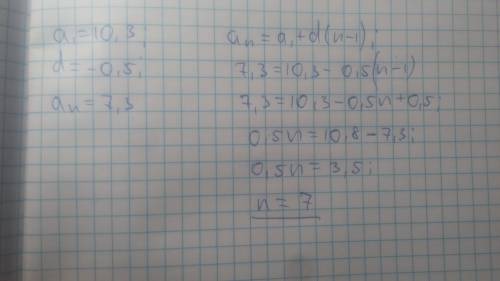 a₁=10,3;
d=-0,5;
aₙ=7,3
aₙ=a₁+d(n-1);
7,3=10,3-0,5(n-1)
7,3=10,3-0,5n+0,5;
0,5n=10,8-7,3;
0,5n=3,5;
n=7